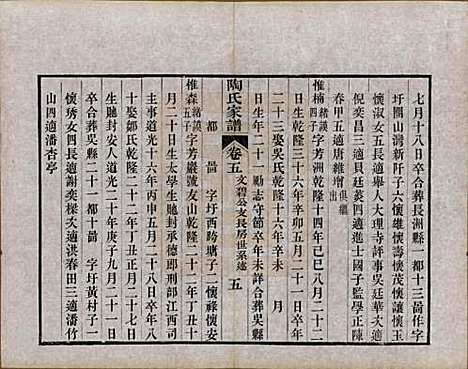 七月十八日卒合葬長洲縣 都十三啚作字
圩團山灣新阡子六懷維懷 茂懷讓懷玉
懷淑女五長適舉人大理寺評事吳廷華次適
倪奕昌三適貢廷炎四適進士國子監學正陳
春甲五適唐維增 俱繼出
惟楠 緒謨四子 字芳洲乾隆十四年己巳八月二十二
日生乾隆三十六年辛卯五月二十一日卒年
二十三娶吳氏乾隆十六年辛未 月
日生年二十一勵志守節卒年未詳合葬吳縣
陶氏家譜 卷五 文碧公支長房世系述 五
都 啚 字圩西跨塘子二懷祿懷安
惟森 緒謨五子 字芳巖號友山乾隆二十二年丁丑十
月二十日生太學生貤封承德郎刑部江西司
主事道光十六年丙申五月二十八日卒年八
十娶鄭氏乾隆二十二年丁丑正月二十七日
生貤封安人道光二十年庚子九月二十一日
卒合葬吳縣二十一都十啚 字圩黃村子一
懷琇女四長適謝奕樑次適洪春田三適潘竹
山四適潘杏亭